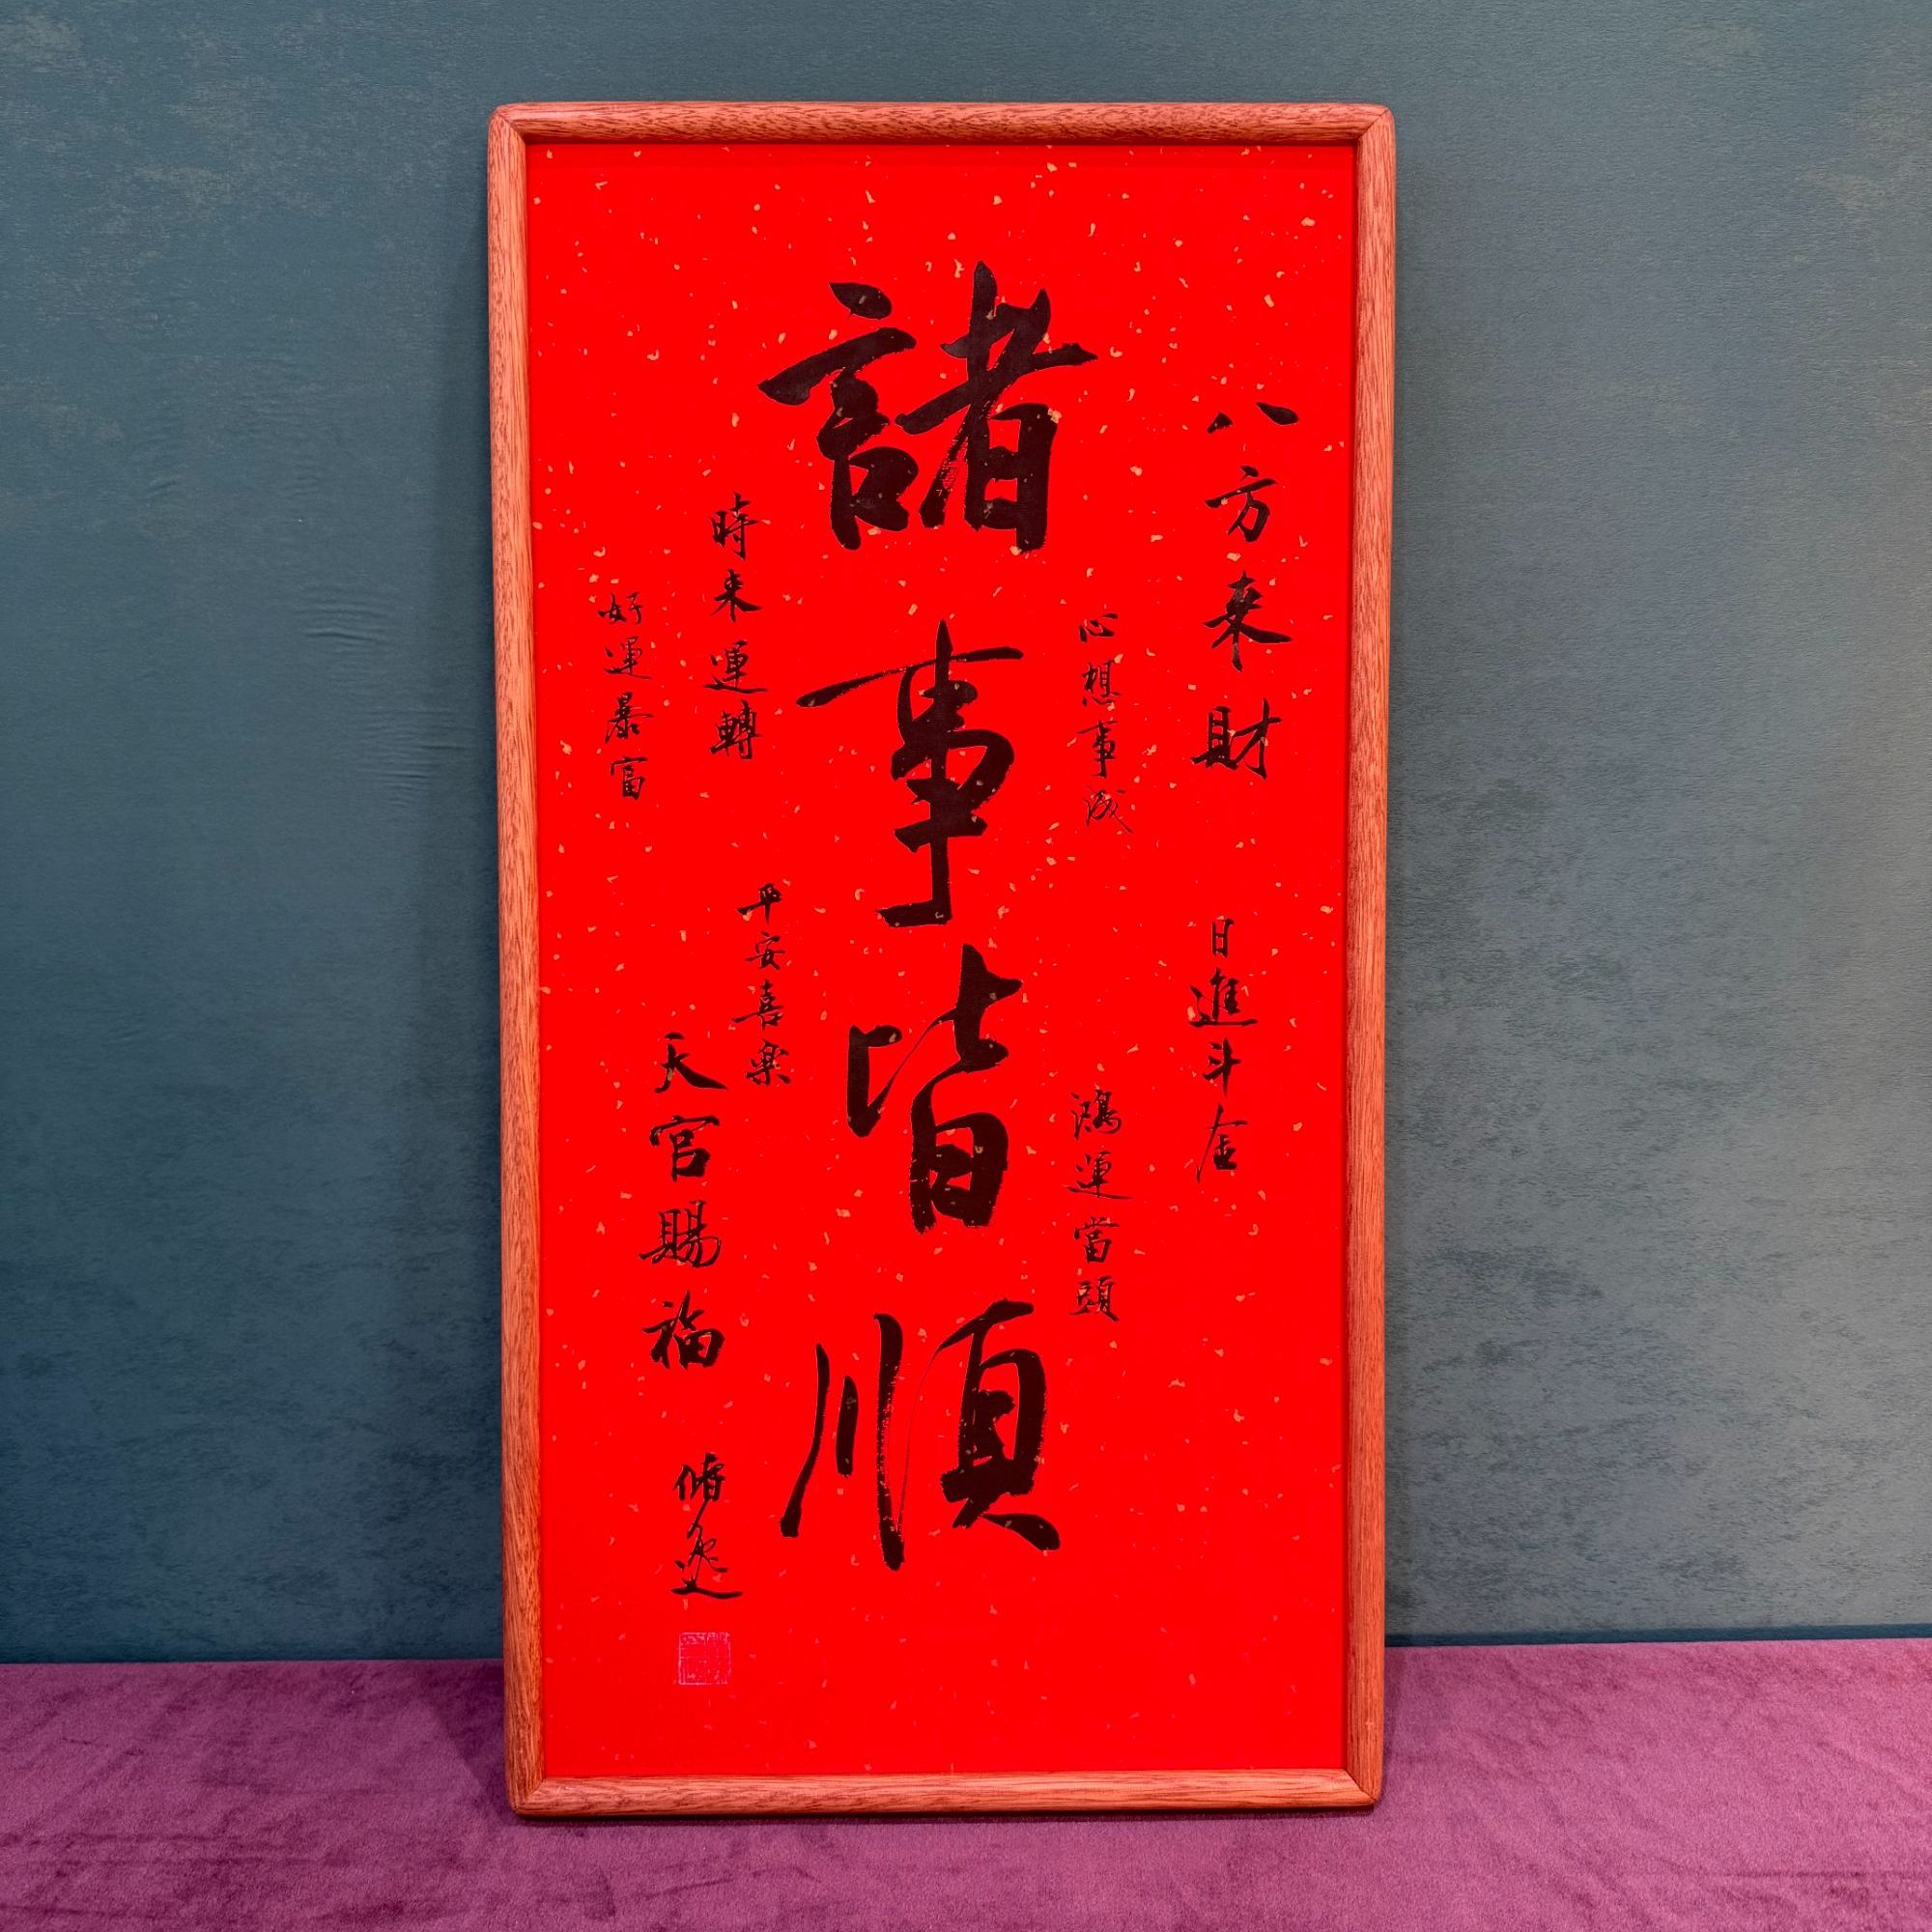 八方来財
日進斗金
心想事成
鴻運當頭
諸事皆順
時来運轉
平安喜楽
好運暴富
天官賜福
脩逸